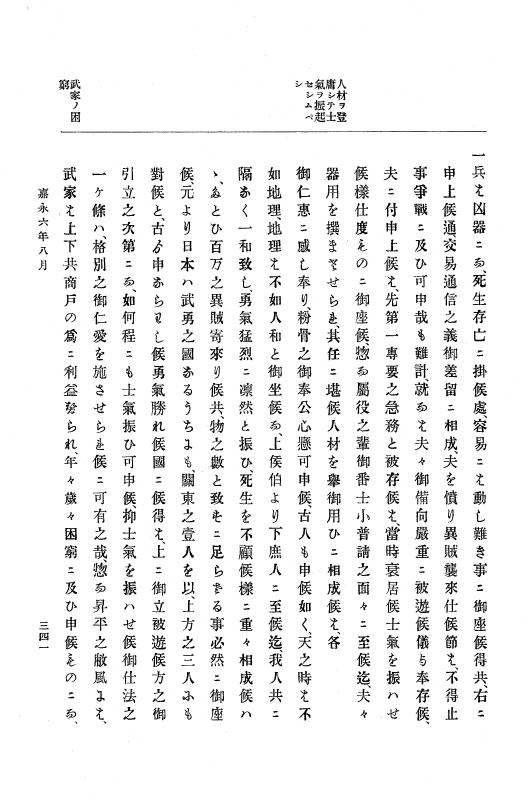 人材ヲ登
庸シテ士
氣ヲ振起
セシムベ
シ
武家ノ困
窮
一兵は凶器ニ而、死生存亡ニ掛候處、容易ニは動し難き事ニ御座候得共、右ニ
申上候通交易通信之義御差留ニ相成、夫を憤り異賊襲來仕候節は、不得止
事爭戰ニ及ひ可申哉も難計、就而は夫々御備向嚴重ニ被遊候儀与奉存候、
夫ニ付申上候は、先第一專要之急務と被存候は、當時衰居候士氣を振ハせ
候樣仕度ものニ御座候、惣而屬役之輩御番士小普請之面々ニ至候迄、夫々
器用を撰ませせられ、其任ニ堪候人材を擧御用ひニ相成候は、各
御仁惠ニ感し奉り、粉骨之御奉公心懸可申候、古人も申候如く、天之時は不
如地理、地理は不如人和と御坐候而、上侯伯より下庶人ニ至候迄、我人共ニ
隔なく一和致し、勇氣猛烈ニ凛然と振ひ、死生を不顧候樣ニ重々相成候ハ
ヽ、たとひ百万之異賊寄來り候共、物之數と致すニ足らさる事必然ニ御座
候、元より日本ハ武勇之國なるうちにも、關東之壹人を以、上方之三人にも
對候と、古より申ならわし候勇氣勝れ候國ニ候得は、上ニ御立被遊候方之御
引立之次第ニ而、如何程ニも士氣振ひ可申候、抑士氣を振ハせ候御仕法之
一ケ條ハ、格別之御仁愛を施させられ候ニ可有之哉、惣而昇平之敝風にて、
武家は上下共商戸の爲ニ利益なられ、年々歳々困窮ニ及ひ申候ものニ而、
嘉永六年八月
三四一